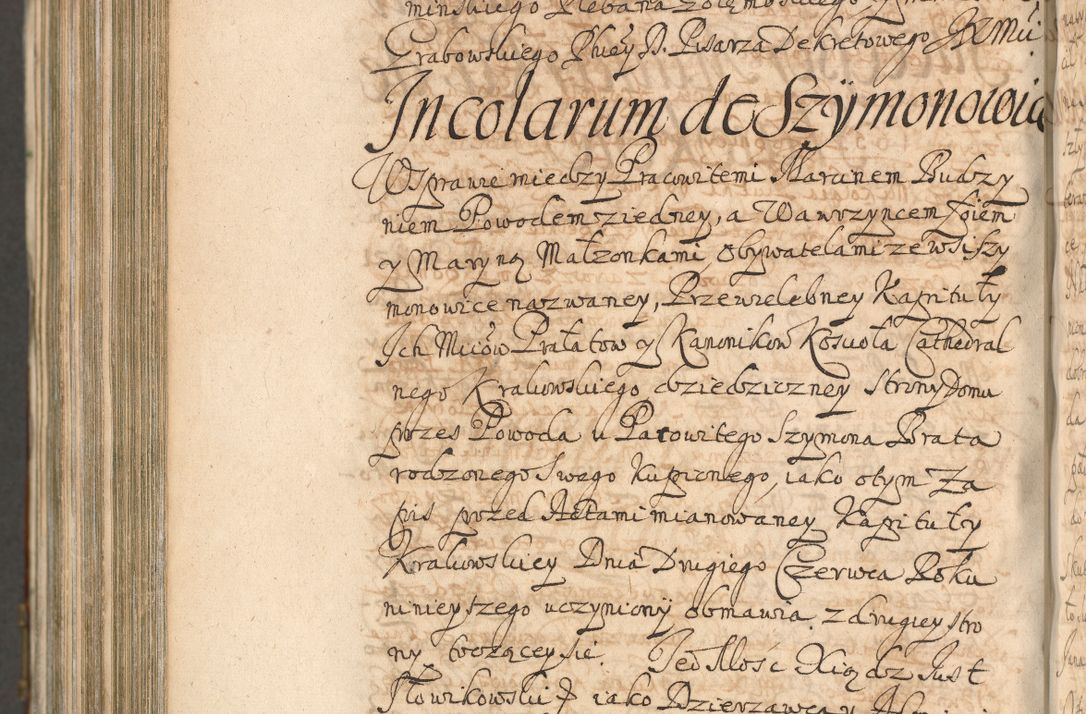 minskiego Plebana
Grabowskiego Pisarza Dekretowego
Incolarum de Szÿmonowic
W Sprawie miedzy Pracowitemi Marcinem Budzy
niem Powodem ziedney, a Wawrzyncem
y Maryną Małzonkami, obywatelami ze wsi Szy
monowice nazwaney, Przewielebney Kapituły
Ich Mciow Prałatow y Kanonikow Koscioła Cathedral
nego Krakowskiego dziedziczney strony Domu
przes Powoda u Pracowitego Szymona Brata
rodzonego Swego kupionego, iako otym Za
pis przed Actami mianowaney Kapituły
Krakowskiey Dnia Drugiego Czerwca Roku
ninieyszego uczyniony obmawia, z drugiey stro
ny toczącey sie. Jeo Mosc Xiądz Just
Słowikowski iako Dzierzawca y